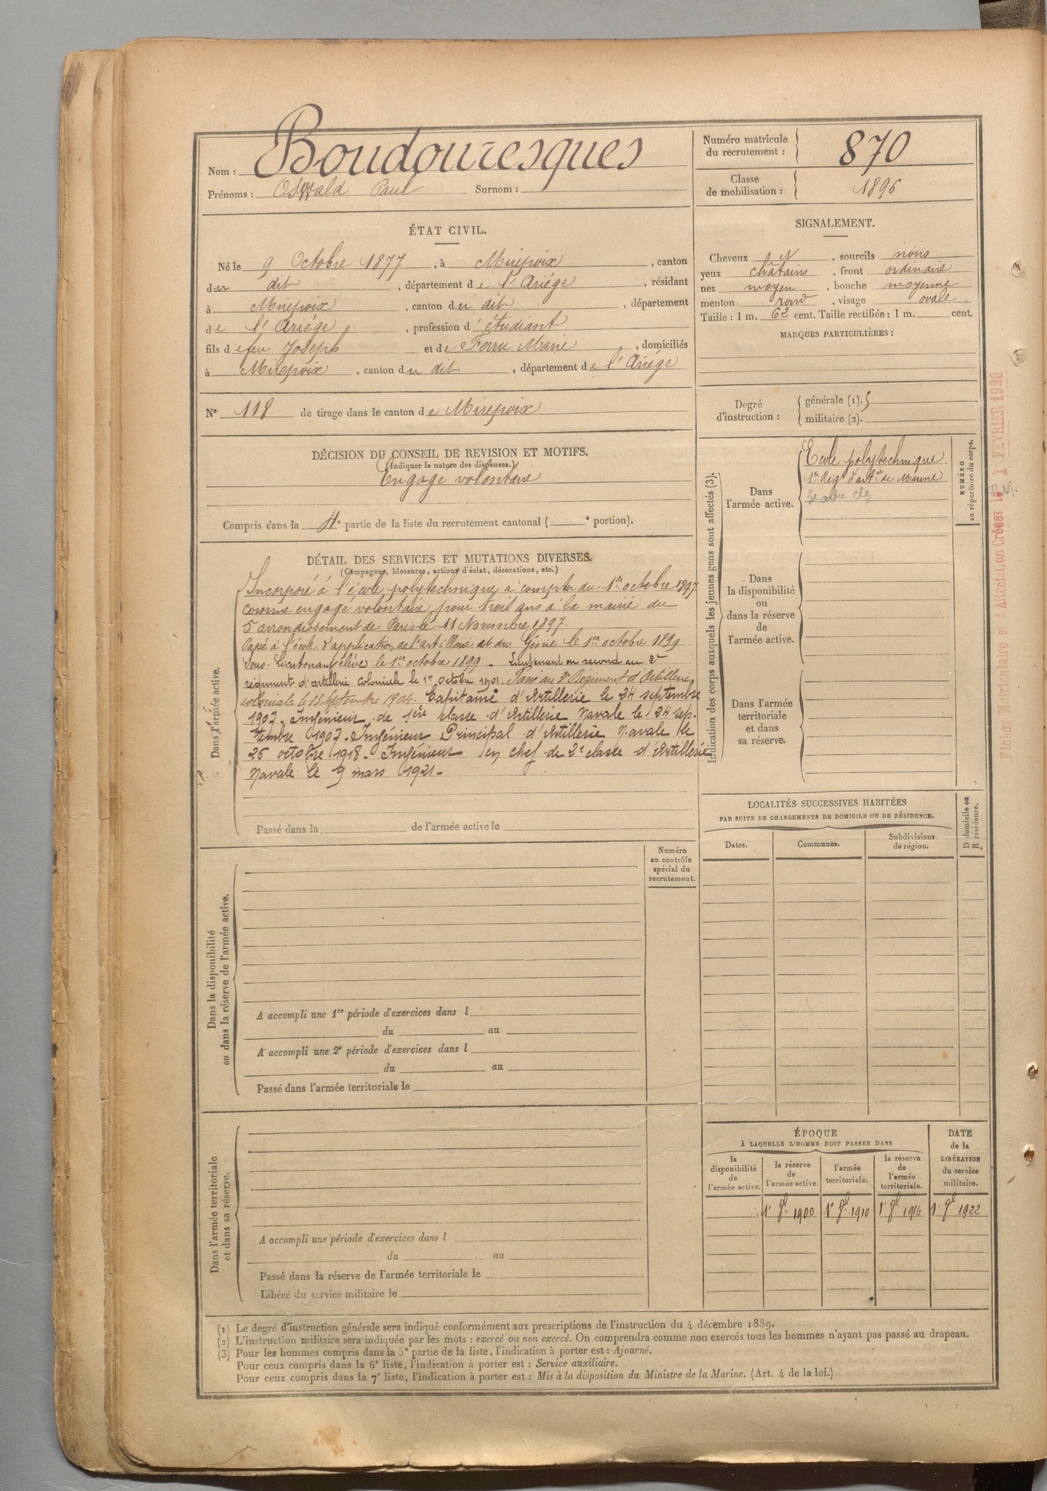 Nom : Boudouresques
Prénoms : Oswald Paul Surnom :
Numéro matricule
du recrutement : 870
Classe
de mobilisation : 1896
ÉTAT CIVIL.
Né le 9 Octobre 1877, à Mirepoix, canton
du dit, département de l'Ariége, résidant
à Mirepoix, canton du dit, département
de l'Ariége, profession d'étudiant
fils de feu Joseph et de Ferru Marie, domiciliés
à Mirepoix, canton du dit, département de l'Ariége
N° 118 de tirage dans le canton de Mirepoix
SIGNALEMENT.
Cheveux N, sourcils noirs
yeux châtains, front ordinaire
nez moyen, bouche moyenne
menton rond, visage ovale
Taille : 1 m. 62 cent. Taille rectifiée : 1 m. cent.
MARQUES PARTICULIÈRES :
Degré
d'instruction :
générale (1).
militaire (2).
DÉCISION DU CONSEIL DE REVISION ET MOTIFS.
(Indiquer la nature des dispenses.)
Engagé volontaire
Compris dans la 4e partie de la liste du recrutement cantonal ( e portion).
DÉTAIL DES SERVICES ET MUTATIONS DIVERSES.
(Campagnes, blessures, actions d'éclat, décorations, etc.)
Dans l'armée active.
Incorporé à l'école polytechnique à compter du 1er octobre 1897
comme engagé volontaire pour trois ans à la mairie du
5e arrondissement de Paris le 11 Novembre 1897
Passé à l'école d'application de l'artillerie et du Génie le 1er octobre 1899
Sous-Lieutenant élève le 1er octobre 1899. Lieutenant en second au 2e
régiment d'artillerie coloniale le 1er octobre 1901. Passé au 3e Régiment d'Artillerie
coloniale le 13 Septembre 1904. Capitaine d'Artillerie le 24 septembre
1907. Ingénieur de 1ère classe d'Artillerie Navale le 24 sep-
tembre 1907. Ingénieur Principal d'Artillerie Navale le
25 octobre 1918. Ingénieur en chef de 2e classe d'Artillerie
Navale le 9 mars 1921.
Passé dans la de l'armée active le
Indication des corps auxquels les jeunes gens sont affectés (3).
Dans
l'armée active.
École polytechnique
1er Régt d'arte de Marine
NUMÉRO
au répertoire du corps.
Dans
la disponibilité
ou
dans la réserve
de
l'armée active.
Dans
l'armée
territoriale
et dans
sa réserve.
Fiches Matriculaire et d'Affectation Créées le 1 FEVRIER 1920
LOCALITÉS SUCCESSIVES HABITÉES
PAR SUITE DE CHANGEMENTS DE DOMICILE OU DE RÉSIDENCE.
Dates.
Communes.
Subdivisions
de région.
D domicile ou
R résidence.
Numéro
au contrôle
spécial du
recrutement.
Dans la disponibilité
ou dans la réserve de l'armée active.
A accompli une 1re période d'exercices dans l
du au
A accompli une 2e période d'exercices dans l
du au
Passé dans l'armée territoriale le
Dans l'armée territoriale
et dans sa réserve.
A accompli une période d'exercices dans l
du au
Passé dans la réserve de l'armée territoriale le
Libéré du service militaire le
ÉPOQUE
À LAQUELLE L'HOMME DOIT PASSER DANS
la
disponibilité
de
l'armée active.
la réserve
de
l'armée active.
l'armée
territoriale.
la réserve
de
l'armée
territoriale.
DATE
de la
LIBÉRATION
du service
militaire.
1er 9bre 1900 1er 9bre 1910 1er 9bre 1916 1er 9bre 1922
(1) Le degré d'instruction générale sera indiqué conformément aux prescriptions de l'instruction du 4 décembre 1889.
(2) L'instruction militaire sera indiquée par les mots : exercé ou non exercé. On comprendra comme non exercés tous les hommes n'ayant pas passé au drapeau.
(3) Pour les hommes compris dans la 5e partie de la liste, l'indication à porter est : Ajourné.
Pour ceux compris dans la 6e liste, l'indication à porter est : Service auxiliaire.
Pour ceux compris dans la 7e liste, l'indication à porter est : Mis à la disposition du Ministre de la Marine. (Art. 4 de la loi.)